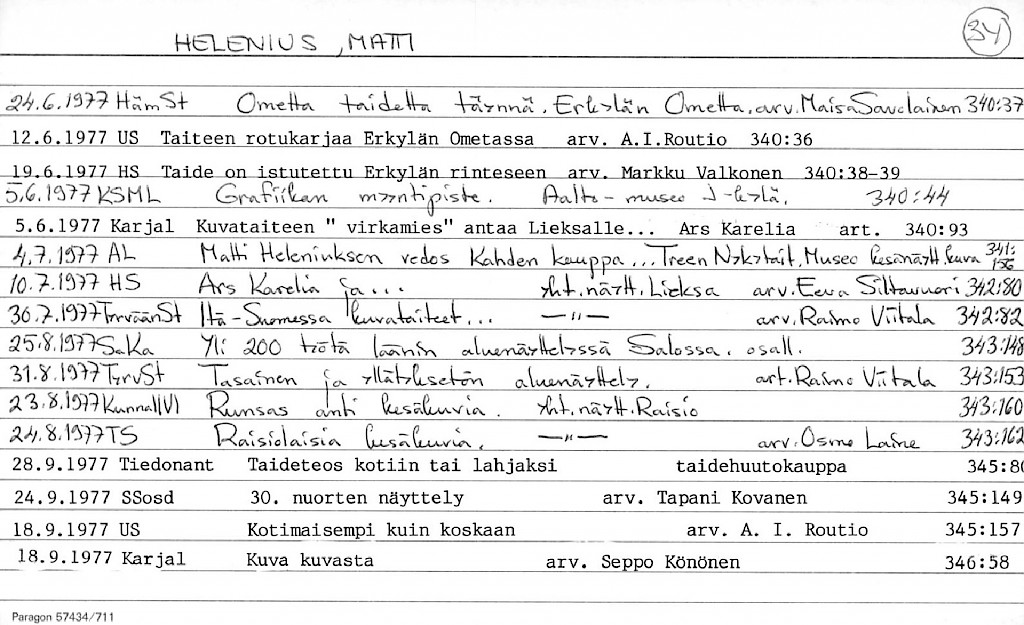 HELENIUS, MATTI
34
24.6.1977 HämSt Ometta taidetta täynnä. Erkylän Ometta. arv. Maisa Savolainen 340:37
12.6.1977 US Taiteen rotukarjaa Erkylän Ometassa arv. A.I.Routio 340:36
19.6.1977 HS Taide on istutettu Erkylän rinteseen arv. Markku Valkonen 340:38-39
5.6.1977 KSML Grafiikan myyntipiste. Aalto-museo J-kylä. 340:44
5.6.1977 Karjal Kuvataiteen " virkamies" antaa Lieksalle... Ars Karelia art. 340:93
4.7.1977 AL Matti Heleniuksen vedos Kahden kauppa... Treen Nykytait. Museo kesänäytt. kuva 341:156
10.7.1977 HS Ars Karelia ja... yht.näytt. Lieksa arv. Eeva Siltavuori 342:80
30.7.1977 TyrväänSt Itä-Suomessa kuvataiteet... —"— arv. Raimo Viitala 342:82
25.8.1977 SaKa Yli 200 työtä läänin aluenäyttelyssä Salossa. osall. 343:148
31.8.1977 TyrvSt Tasainen ja yllätyksetön aluenäyttely. art. Raimo Viitala 343:153
23.8.1977 Kunnall(V) Runsas anti kesäkuvia. yht.näytt. Raisio 343:160
24.8.1977 TS Raisiolaisia kesäkuvia. —"— arv. Osmo Laine 343:162
28.9.1977 Tiedonant Taideteos kotiin tai lahjaksi taidehuutokauppa 345:80
24.9.1977 SSosd 30. nuorten näyttely arv. Tapani Kovanen 345:149
18.9.1977 US Kotimaisempi kuin koskaan arv. A. I. Routio 345:157
18.9.1977 Karjal Kuva kuvasta arv. Seppo Könönen 346:58
Paragon 57434/711